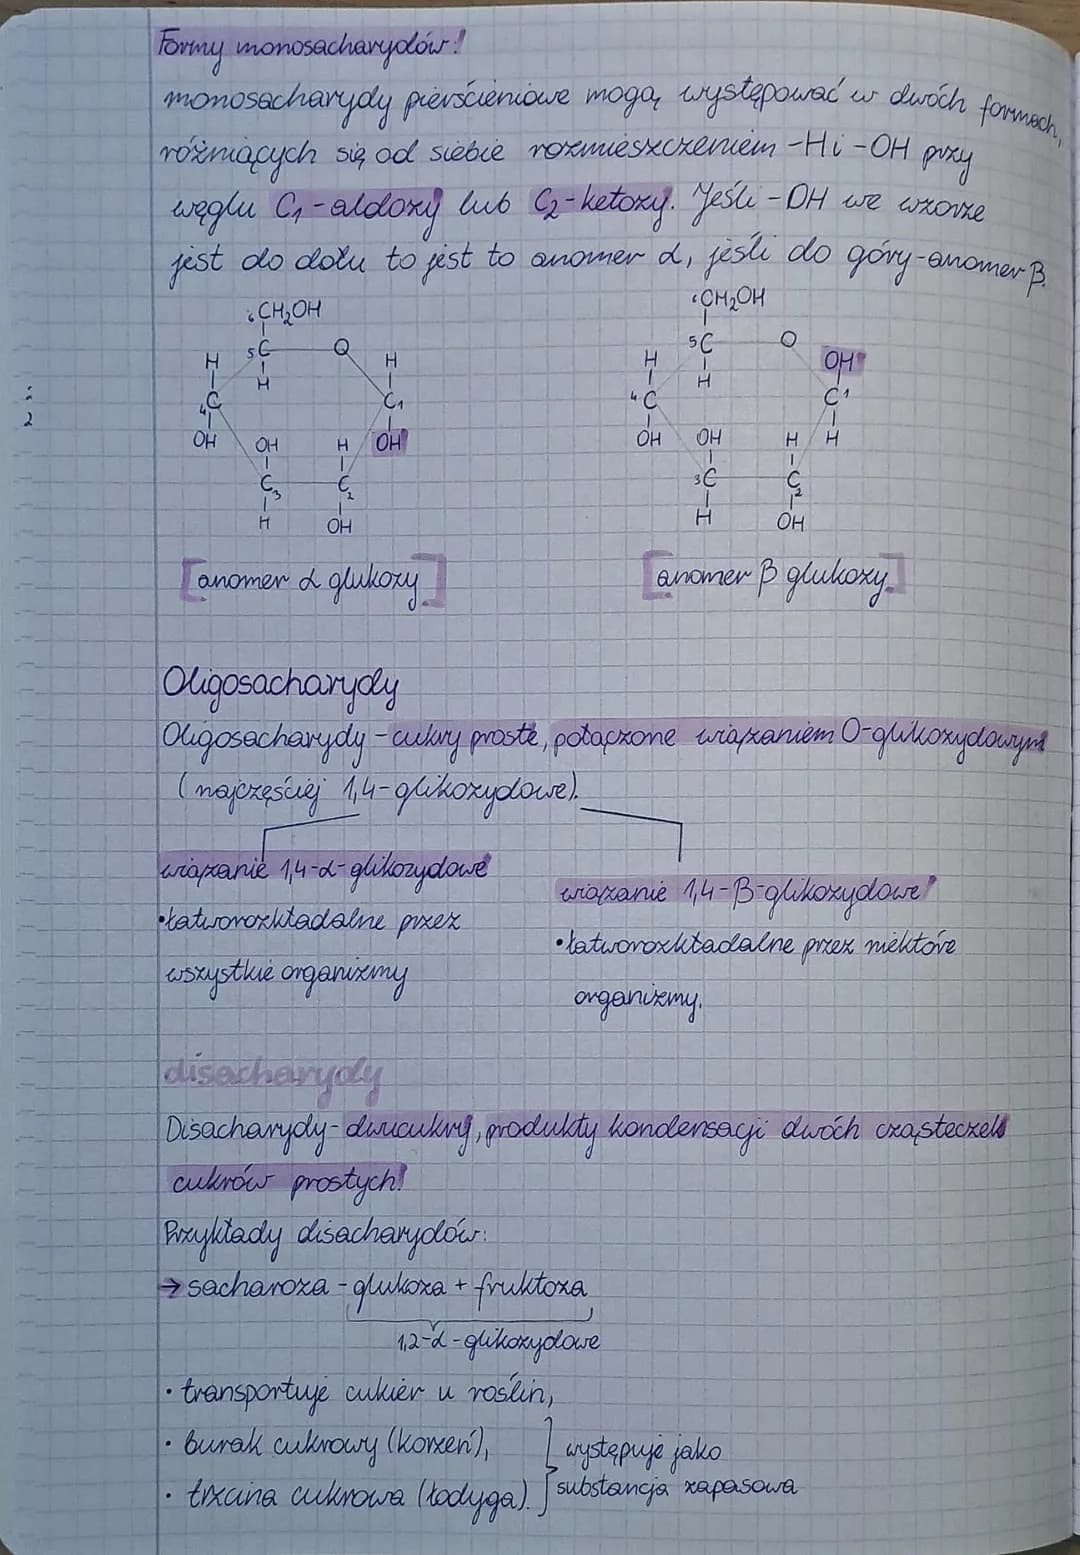 Formy monosacharydów:
monosacharydy pierścieniowe mogą występować w dwóch formach,
różniących się od siebie rozmieszczeniem -H i -OH przy
węglu C₁-aldozy lub C₂-ketozy. Jeśli -OH we wzorze
jest do dołu to jest to anomer α, jeśli do góry-anomer β.
₆CH₂OH ₆CH₂OH
5C O 5C O
H H H H H OH
4C C₁ 4C C¹
OH OH H OH OH OH H H
C₃ C₂ 3C C₂
H OH H OH
[anomer α glukozy] [anomer β glukozy]
Oligosacharydy
Oligosacharydy - cukry proste, połączone wiązaniem O-glikozydowym
(najczęściej 1,4-glikozydowe).
wiązanie 1,4-α-glikozydowe
•łatworozkładalne przez
wszystkie organizmy
wiązanie 1,4-β-glikozydowe
•łatworozkładalne przez niektóre
organizmy.
disacharydy
Disacharydy- dwucukry, produkty kondensacji dwóch cząsteczek
cukrów prostych.
Przykłady disacharydów:
→ sacharoza - glukoza + fruktoza
1,2-α-glikozydowe
• transportuje cukier u roślin,
• burak cukrowy (korzeń),
• trzcina cukrowa (łodyga).
występuje jako
substancja zapasowa